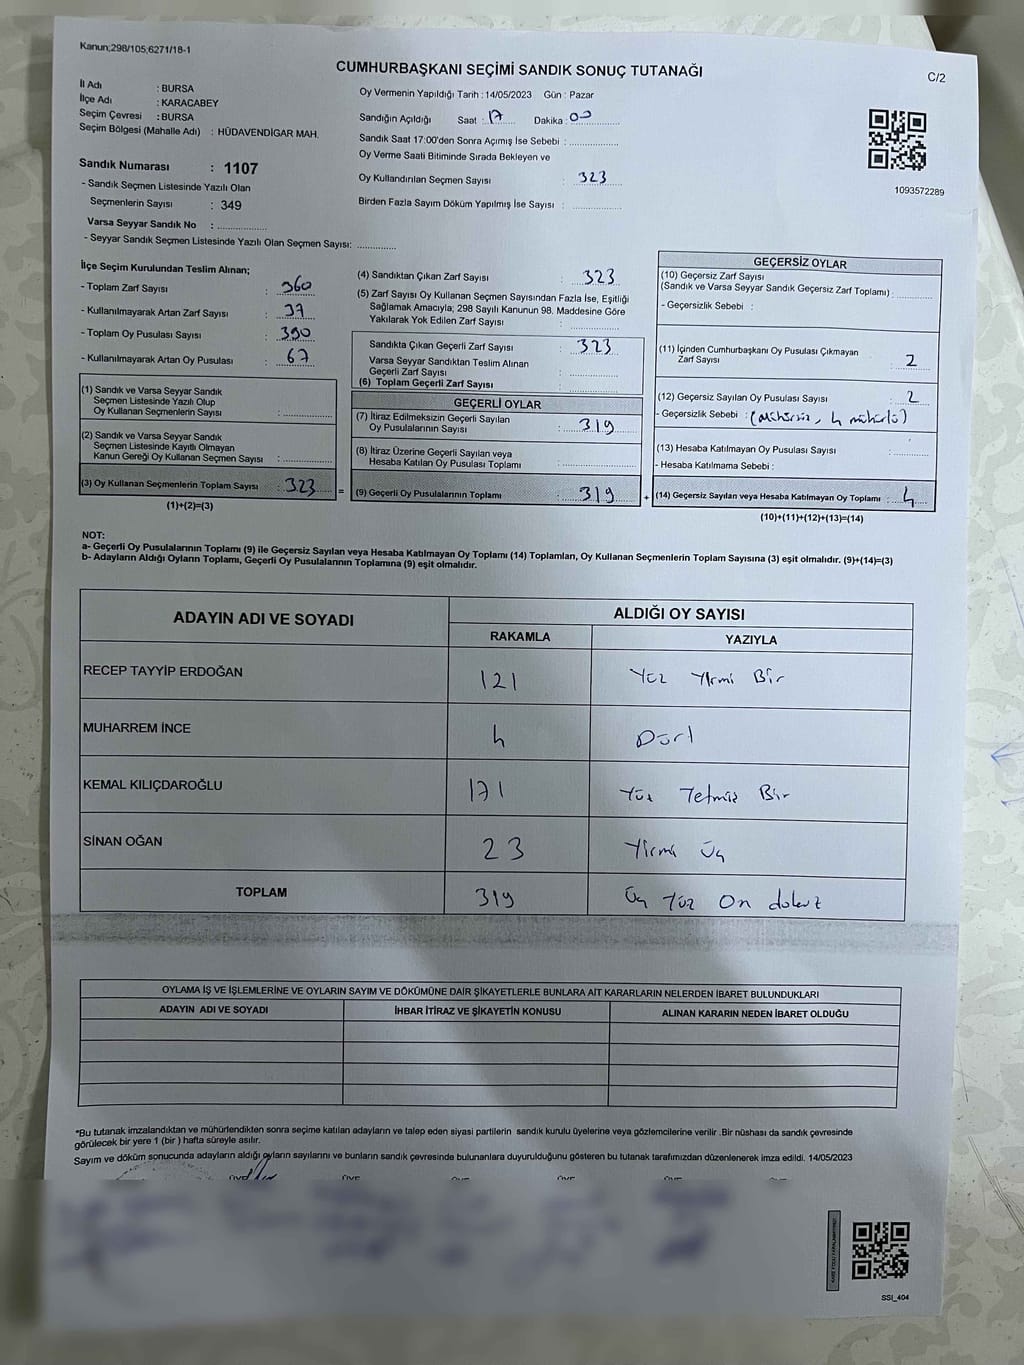 Kanun;298/105;6271/18-1
CUMHURBAŞKANI SEÇİMİ SANDIK SONUÇ TUTANAĞI
C/2
İl Adı : BURSA
İlçe Adı : KARACABEY
Seçim Çevresi : BURSA
Seçim Bölgesi (Mahalle Adı) : HÜDAVENDİGAR MAH.
Sandık Numarası : 1107
- Sandık Seçmen Listesinde Yazılı Olan
Seçmenlerin Sayısı : 349
Varsa Seyyar Sandık No :
- Seyyar Sandık Seçmen Listesinde Yazılı Olan Seçmen Sayısı:
Oy Vermenin Yapıldığı Tarih : 14/05/2023 Gün : Pazar
Sandığın Açıldığı Saat : 17 Dakika : 00
Sandık Saat 17:00'den Sonra Açımış İse Sebebi :
Oy Verme Saati Bitiminde Sırada Bekleyen ve
Oy Kullandırılan Seçmen Sayısı : 323
Birden Fazla Sayım Döküm Yapılmış İse Sayısı :
1093572289
İlçe Seçim Kurulundan Teslim Alınan;
- Toplam Zarf Sayısı : 360
- Kullanılmayarak Artan Zarf Sayısı : 37
- Toplam Oy Pusulası Sayısı : 390
- Kullanılmayarak Artan Oy Pusulası : 67
(1) Sandık ve Varsa Seyyar Sandık
Seçmen Listesinde Yazılı Olup
Oy Kullanan Seçmenlerin Sayısı :
(2) Sandık ve Varsa Seyyar Sandık
Seçmen Listesinde Kayıtlı Olmayan
Kanun Gereği Oy Kullanan Seçmen Sayısı :
(3) Oy Kullanan Seçmenlerin Toplam Sayısı : 323
(1)+(2)=(3)
=
(4) Sandıktan Çıkan Zarf Sayısı : 323
(5) Zarf Sayısı Oy Kullanan Seçmen Sayısından Fazla İse, Eşitliği
Sağlamak Amacıyla, 298 Sayılı Kanunun 98. Maddesine Göre
Yakılarak Yok Edilen Zarf Sayısı :
Sandıkta Çıkan Geçerli Zarf Sayısı : 323
Varsa Seyyar Sandıktan Teslim Alınan
Geçerli Zarf Sayısı :
(6) Toplam Geçerli Zarf Sayısı
GEÇERLİ OYLAR
(7) İtiraz Edilmeksizin Geçerli Sayılan
Oy Pusulalarının Sayısı : 319
(8) İtiraz Üzerine Geçerli Sayılan veya
Hesaba Katılan Oy Pusulası Toplamı :
(9) Geçerli Oy Pusulalarının Toplamı : 319
+
GEÇERSİZ OYLAR
(10) Geçersiz Zarf Sayısı
(Sandık ve Varsa Seyyar Sandık Geçersiz Zarf Toplamı) :
- Geçersizlik Sebebi :
(11) İçinden Cumhurbaşkanı Oy Pusulası Çıkmayan
Zarf Sayısı : 2
(12) Geçersiz Sayılan Oy Pusulası Sayısı : 2
- Geçersizlik Sebebi : (Mühürsüz, 4 mühürlü)
(13) Hesaba Katılmayan Oy Pusulası Sayısı :
- Hesaba Katılmama Sebebi :
(14) Geçersiz Sayılan veya Hesaba Katılmayan Oy Toplamı : 4
(10)+(11)+(12)+(13)=(14)
NOT:
a- Geçerli Oy Pusulalarının Toplamı (9) ile Geçersiz Sayılan veya Hesaba Katılmayan Oy Toplamı (14) Toplamları, Oy Kullanan Seçmenlerin Toplam Sayısına (3) eşit olmalıdır. (9)+(14)=(3)
b- Adayların Aldığı Oyların Toplamı, Geçerli Oy Pusulalarının Toplamına (9) eşit olmalıdır.
ADAYIN ADI VE SOYADI
ALDIĞI OY SAYISI
RAKAMLA YAZIYLA
RECEP TAYYİP ERDOĞAN 121 Yüz Yirmi Bir
MUHARREM İNCE 4 Dört
KEMAL KILIÇDAROĞLU 171 Yüz Yetmiş Bir
SİNAN OĞAN 23 Yirmi Üç
TOPLAM 319 Üç Yüz On dokuz
OYLAMA İŞ VE İŞLEMLERİNE VE OYLARIN SAYIM VE DÖKÜMÜNE DAİR ŞİKAYETLERLE BUNLARA AİT KARARLARIN NELERDEN İBARET BULUNDUKLARI
ADAYIN ADI VE SOYADI İHBAR İTİRAZ VE ŞİKAYETİN KONUSU ALINAN KARARIN NEDEN İBARET OLDUĞU
*Bu tutanak imzalandıktan ve mühürlendikten sonra seçime katılan adayların ve talep eden siyasi partilerin sandık kurulu üyelerine veya gözlemcilerine verilir .Bir nüshası da sandık çevresinde
görülecek bir yere 1 (bir ) hafta süreyle asılır.
Sayım ve döküm sonucunda adayların aldığı oyların sayılarını ve bunların sandık çevresinde bulunanlara duyurulduğunu gösteren bu tutanak tarafımızdan düzenlenerek imza edildi. 14/05/2023
SSI_404